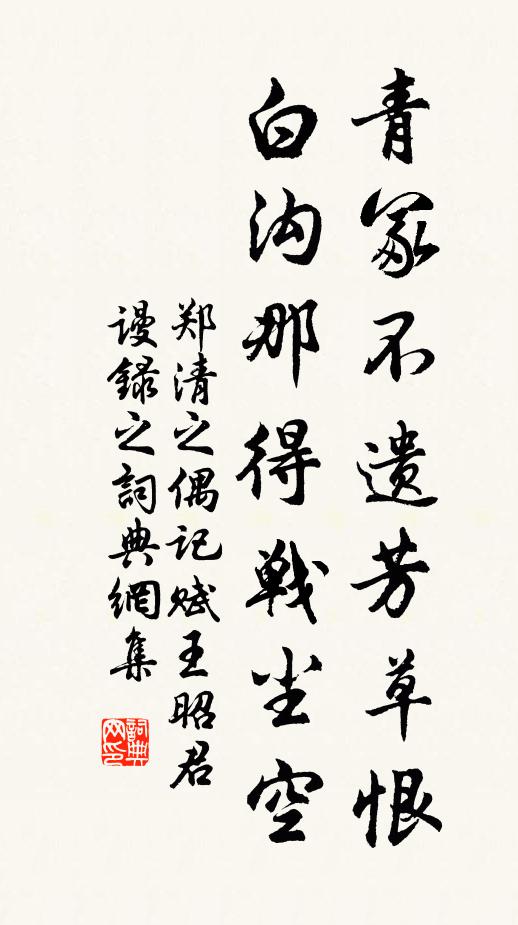 青冢不遗芳草恨
白沟那得戰尘空
郑清之偶记赋王昭君
谩録之詞典網集
詞典網印